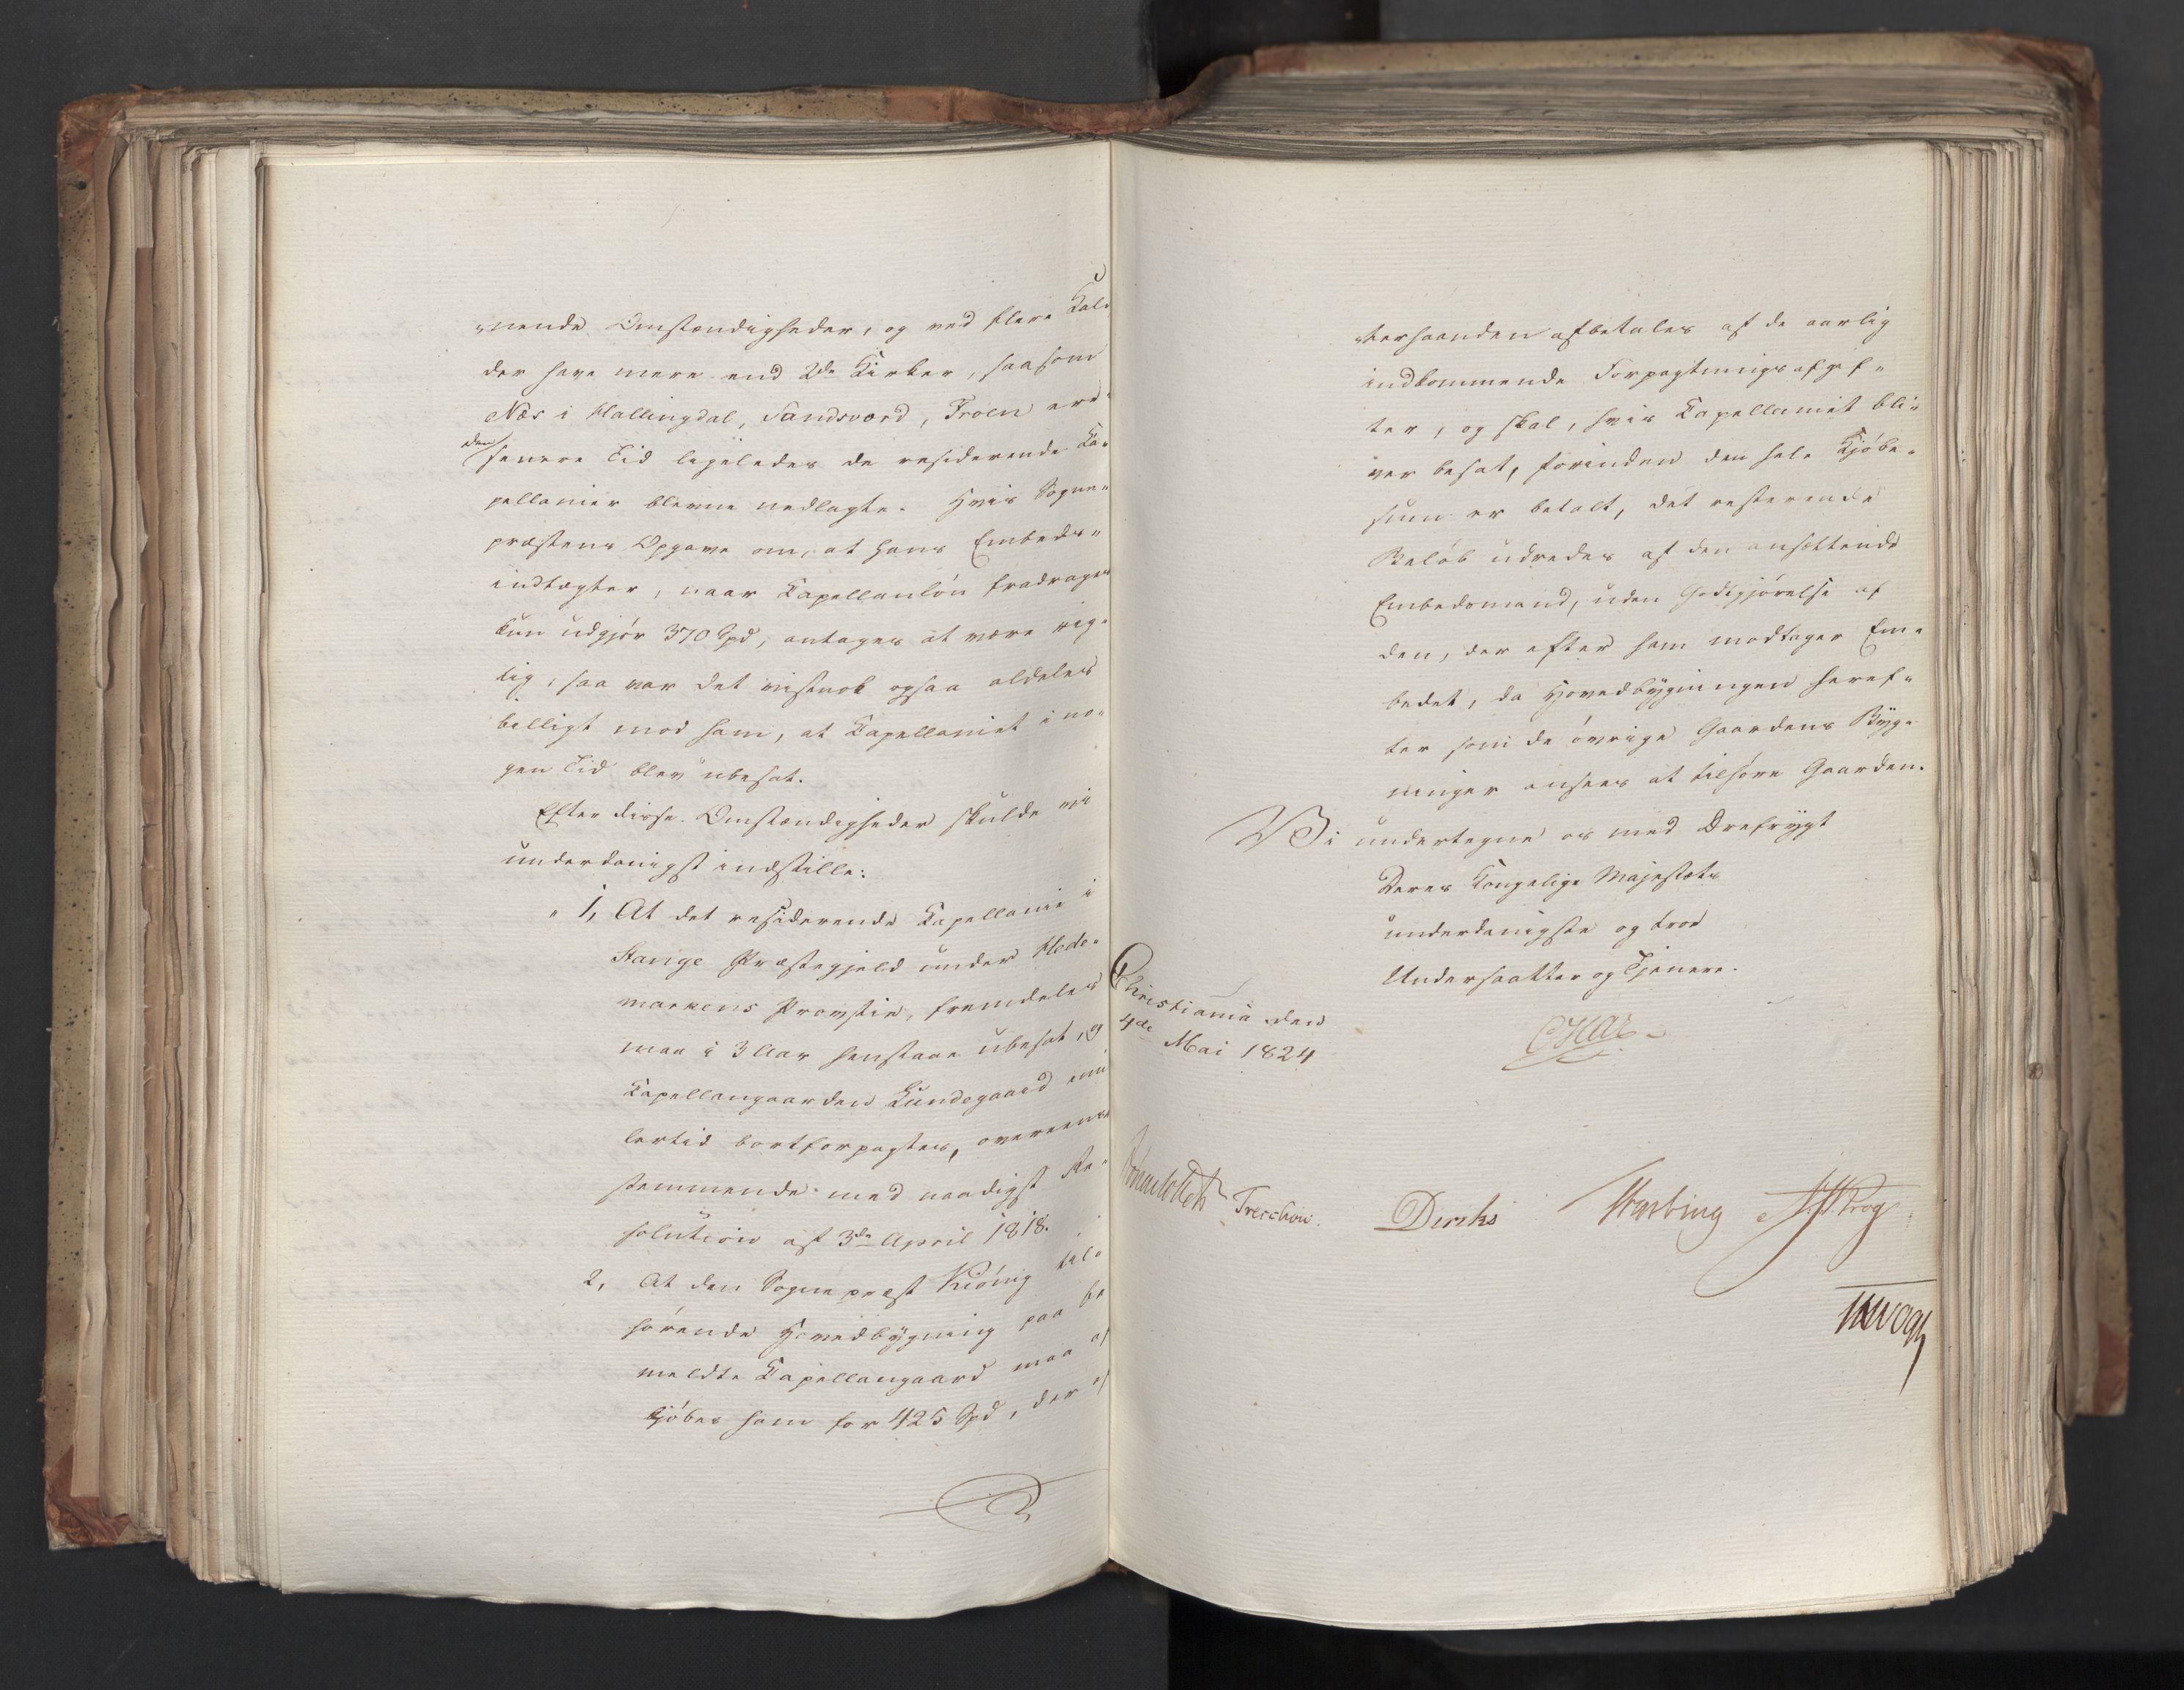 nende Omstændigheder, og ved flere Kald
der have mere end 2de Kirker, saasom
Næs i Hallingdal, Sandsværd, Froen ere
den senere Tid ligeledes de residerende Ka-
pellanier blevne nedlagte. Hvis Sogne-
præstens Opgave om, at hans Embeds-
indtægter, naar Kapellanlön fradrages
kun udgjör 370 Spd, antages at være rig-
tig, saa var det vistnok ogsaa aldeles
billigt mod ham, at Kapellaniet i no-
gen Tid blev ubesat.
Efter disse Omstændigheder skulde vi
underdanigst indstille:
" 1, At det residerende Kapellanie i
Stange Præstegjeld under Hede-
markens Provstie, fremdeles
maa i 3 Aar henstaae ubesat, og
Kapellangaarden Lundegaard imi
lertid bortforpagtes, overeens-
stemmende med naadigst Re-
solution af 3de April 1818.
2, At den Sognepræst Kiönig til-
hörende Hovedbygning paa be
meldte Kapellangaard maa af
kjöbes ham for 425 Spd, der ef
terhaanden afbetales af de aarlig
indkommende Forpagtningsafgif-
ter, og skal, hvis Kapellaniet bli-
ver besat, forinden den hele Kjöbe-
sum er betalt, det resterende
Belöb udredes af den ansættende
Embedsmand, uden Godtgjörelse af
den, der efter ham modtager Em-
bedet, da Hovedbygningen heref-
ter som de övrige Gaardens Byg-
ninger ansees at tilhöre Gaarden.
Vi undertegne os med Ærefrygt
Deres Kongelige Majestæts
underdanigste og troe
Undersaatter og Tjenere.
Christiania den
4de Mai 1824
Treschow.
Diriks
J. H. Krog